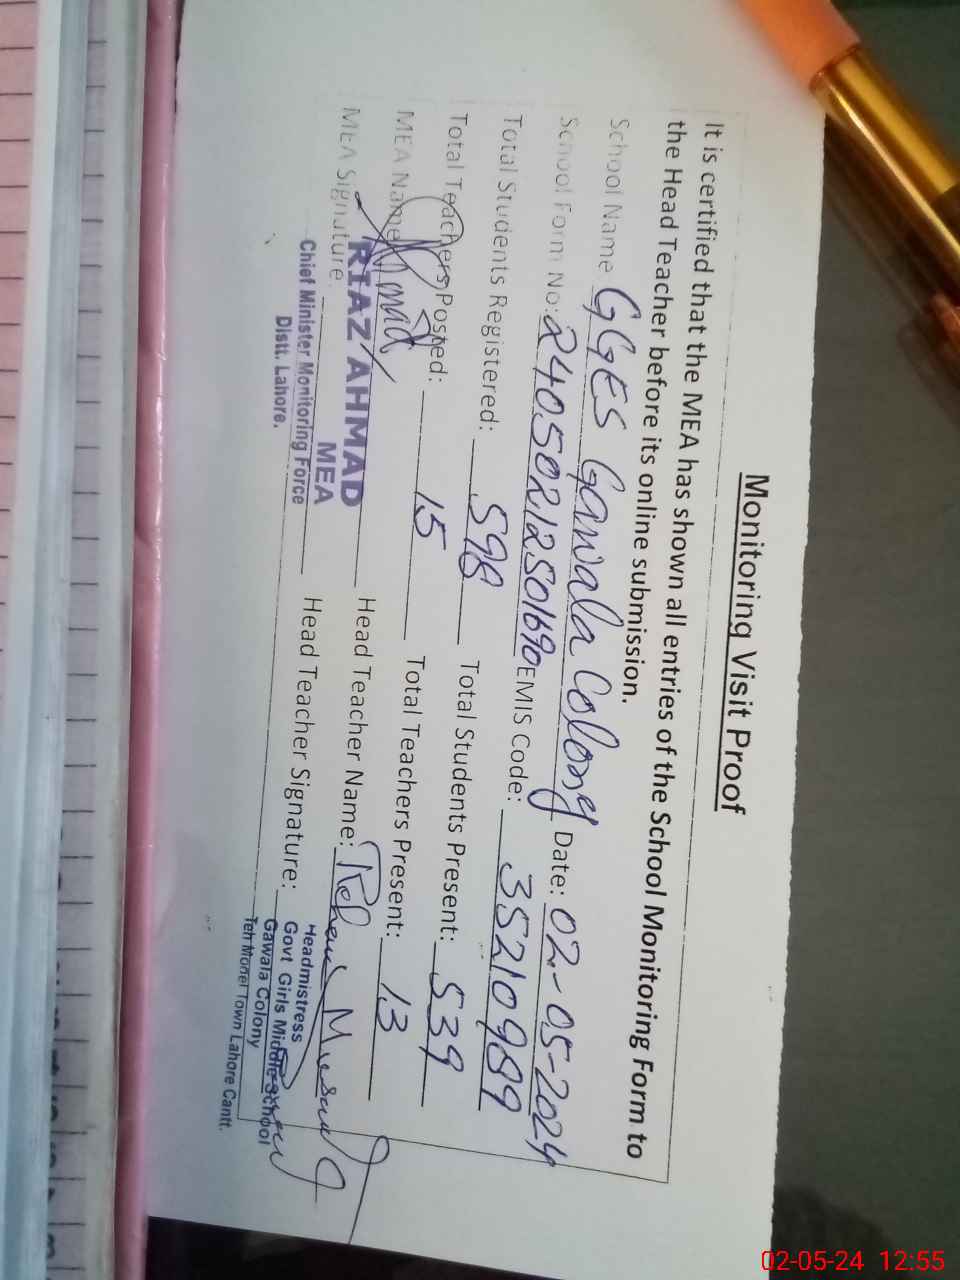 Monitoring Visit Proof
It is certified that the MEA has shown all entries of the School Monitoring Form to
the Head Teacher before its online submission.
School Name GGES Gawala Colony Date: 02-05-2024
School Form No: 24050212501690 EMIS Code: 35210989
Total Students Registered: 598 Total Students Present: 539
Total Teachers Posted: 15 Total Teachers Present: 13
MEA Name Head Teacher Name:
MEA Signature. Head Teacher Signature:
RIAZ AHMAD
MEA
Chief Minister Monitoring Force
Distt. Lahore.
Headmistress
Govt Girls Middle School
Gawala Colony
Teh Model Town Lahore Cantt.
02-05-24 12:55